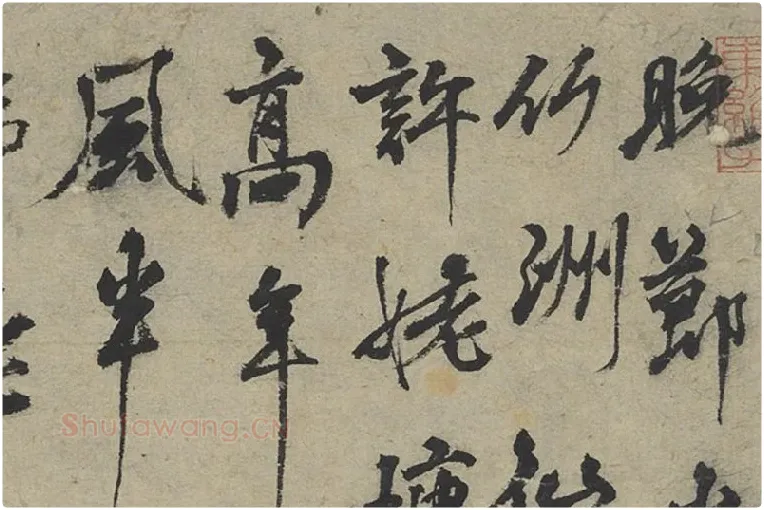 晚節
竹洲
許姥
高年
風半
Shufawang.CN